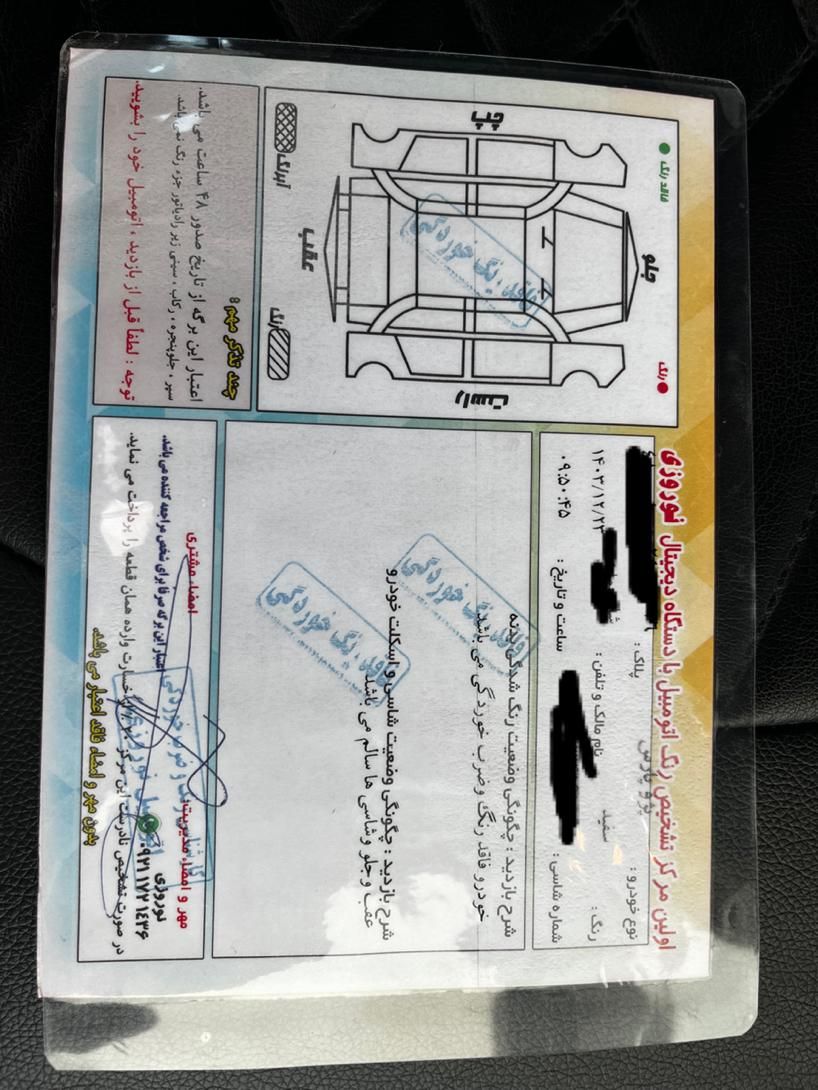 اولین مرکز تشخیص رنگ اتومبیل با دستگاه دیجیتال نوروزی
نوع خودرو : پژو پارس
پلاک :
رنگ : سفید
نام مالک و تلفن :
۱۴۰۳/۱۲/۲۳
شماره شاسی :
ساعت و تاریخ : ۰۹:۵۰:۴۵
شرح بازدید : چگونگی وضعیت رنگ شدگی بدنه
خودرو فاقد رنگ و ضرب خوردگی می باشد
فاقد رنگ خوردگی
شرح بازدید : چگونگی وضعیت شاسی و اسکلت خودرو
عقب و جلو و شاسی ها سالم می باشد
فاقد رنگ خوردگی
مهر و امضاء مدیریت :
امضاء مشتری
نوروزی
۰۹۲۱ ۱۷۲ ۱۴۳۶
اعتبار این برگه صرفا برای شخص مراجعه کننده می باشد.
در صورت تشخیص نادرست این مرکز خسارت وارده همان قطعه را پرداخت می نماید.
بدون مهر و امضاء فاقد اعتبار می باشد.
فاقد رنگ
رنگ
جلو
چپ
راست
عقب
فاقد رنگ خوردگی
آبرنگ
رنگ
چند تذکر مهم :
اعتبار این برگه از تاریخ صدور ۴۸ ساعت می باشد.
سپر ، جلوپنجره ، رکاب ، سینی زیر رادیاتور جزء رنگ نمی باشد.
توجه : لطفاً قبل از بازدید ، اتومبیل خود را بشویید.